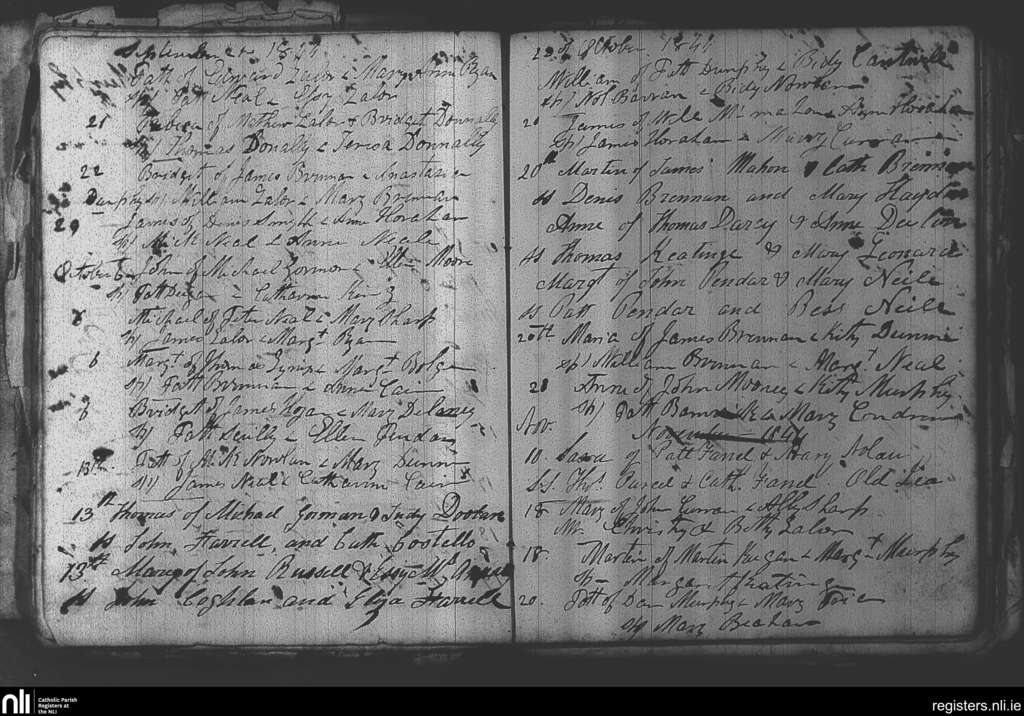 September 1844
Patt of Edward Lalor & Mary Ryan
Sp/ Patt Neal & Lalor
21 of Mathew Lalor & Bridget Donnally
Sp/ Thomas Donally & Teresa Donnally
22 Bridget of James Brennan & Anastasia
Dunphy Sp/ William Lalor & Mary Brennan
29 James of Denis Smyth & Anne Horahan
Sp/ Mick Neal & Anne Neale
October 6 John of Michael Gorman & Ellen Moore
Sp/ Patt & Catharine
6 Michael of Peter Neal & Mary Sharp
Sp/ James Lalor & Margt Ryan
6 Margt of & Margt Bolger
Sp/ Patt Brennan & Anne Cain
Bridget of James Hogan & Mary Delaney
Sp/ Patt Scully & Ellen
13th Patt of Mick Nowlan & Mary Dunn
Sp/ James Neal & Catharine Cain
13th Thomas of Michael Gorman & Judy
Ss John Farrell, and Cath Costello
13th Mary of John Russell &
Ss John Coghlan and Eliza Farrell
22 of October 1844
William of Patt Dunphy & Bidy Cantwell
Sp/ & Bidy Nowlan
20 James of Horahan
Sp/ James Horahan & Mary Curran
20th Martin of James Mahon & Cath Brennan
Ss Denis Brennan and Mary Hayden
Anne of Thomas Darcy & Anne
Ss Thomas Keatinge & Mary Leonard
Margt of John Pendar & Mary Neill
Ss Patt Pendar and Bess Neill
20th Maria of James Brennan & Kitty Dunne
Sp/ William Brennan & Margt Neal
28 Anne of John Mooney & Kitty Murphy
Sp/ Patt & Mary Condron
Nov. November 1844
10 of Patt Farrel & Mary Nolan
Ss. Ths. Purcel & Cath. Farrel Old Lea
18 Mary of John Curran & Ally Sharp
Christy & Betty Lalor
18. Martin of Martin & Margt Murphy
Sp Morgan Keating
20. Patt of Dan Murphy & Mary
Sp Mary
nli
Catholic Parish
Registers at
the NLI
registers.nli.ie